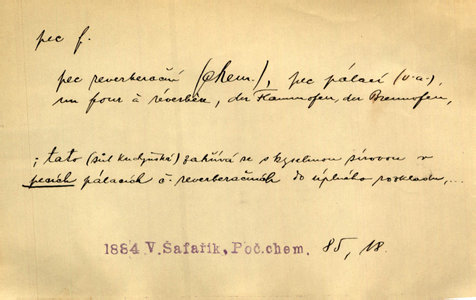 pec f.
pec reverberační (chem.), pec pálací (v.a.),
un four à réverbère, der Flammofen, der Brennofen,
; tato (sůl kuchyňská) zahřívá se s kyselinou sírovou v
pecích pálacích č. reverberačních do úplného rozkladu,...
1884 V. Šafařík, Poč. chem. 85, 18.